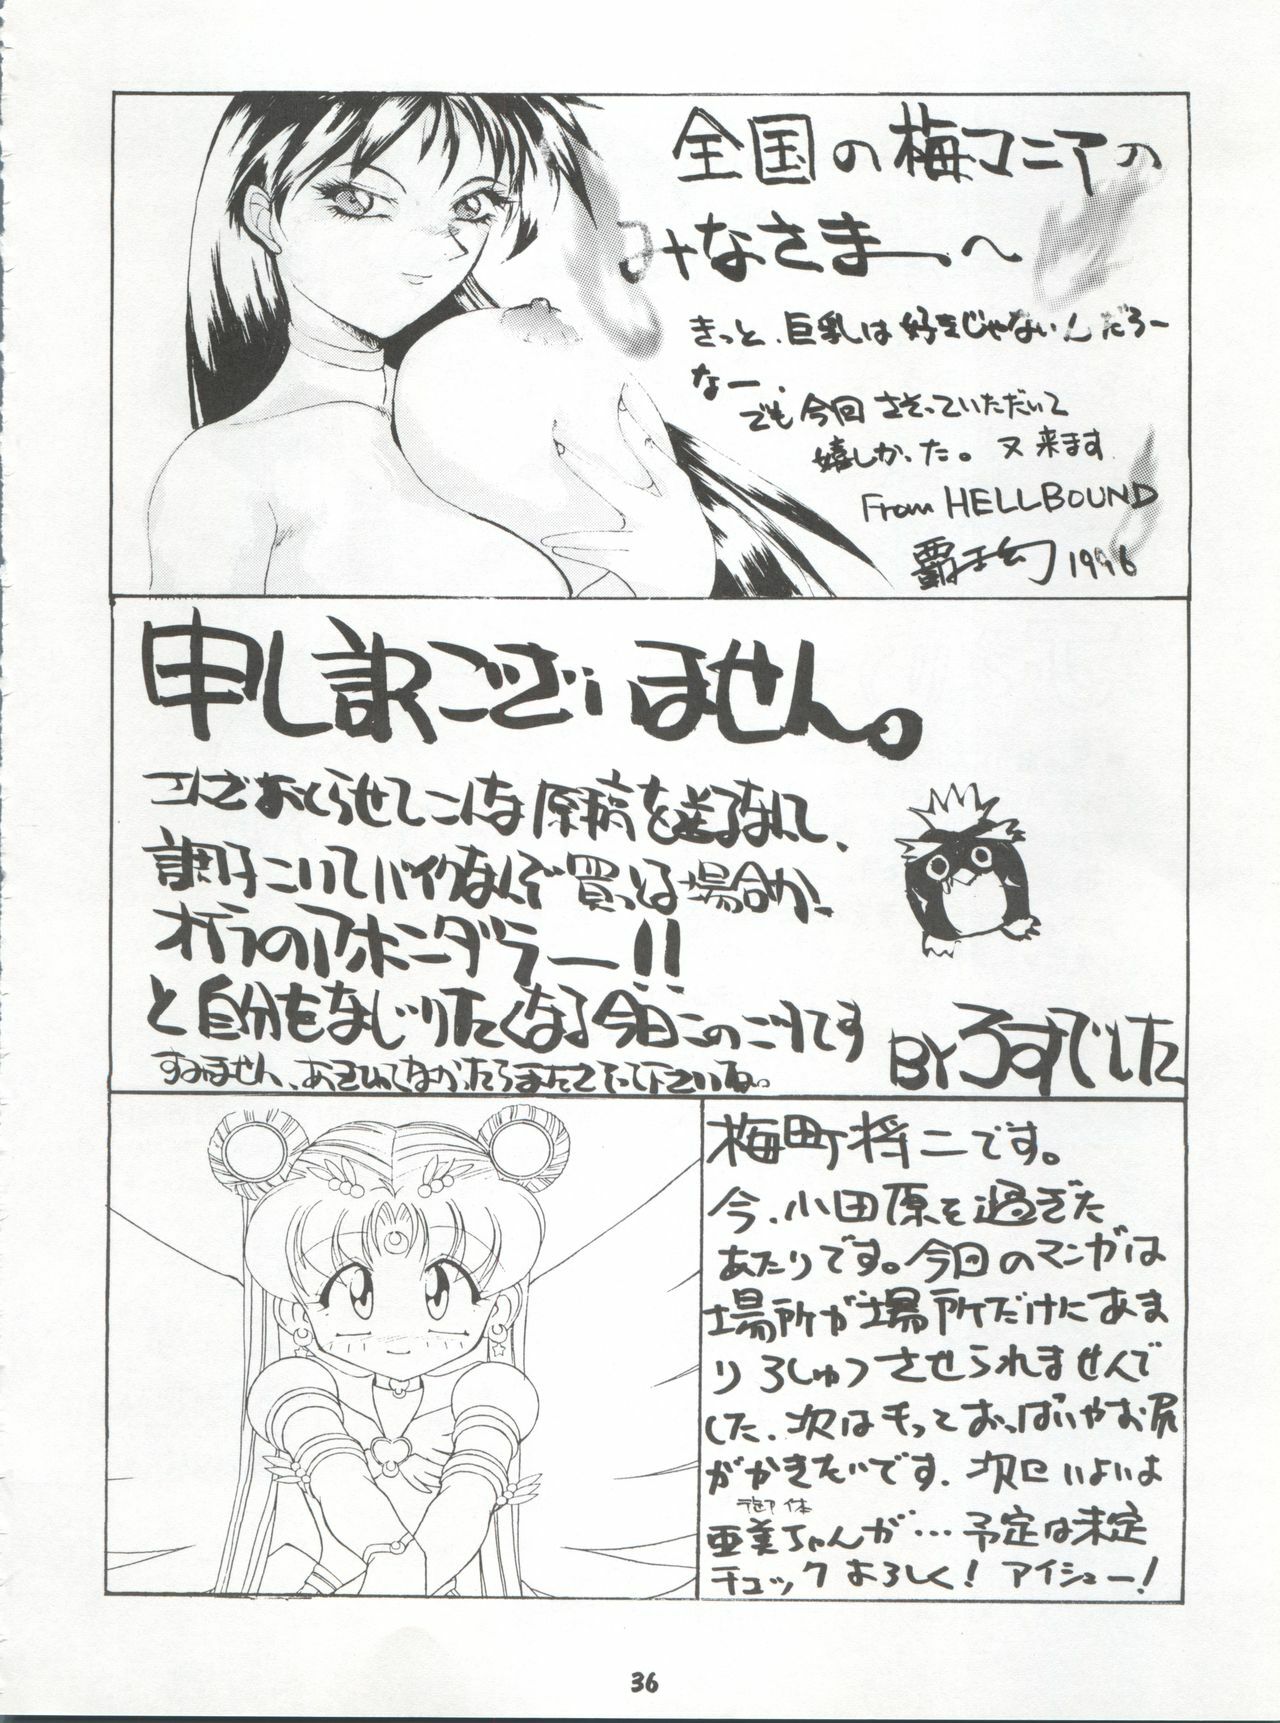 全国の梅マニアの
みなさまー、へ
きっと、巨乳は好きじゃないんだろー
なー、
でも今回さそっていただいて
嬉しかった。又来ます
From HELLBOUND
1996
申し訳ございません。
さんざおくらせてこんな原稿を送るなんて、
調子こいてバイクなんぞ買っとる場合か、
オラのアホンダラー!!
と自分をなじりたくなる今日このごろです
すみません、あきれてなかったらまたさそって下さいね。
BYろすでした
梅町将二です。
今、小田原を過ぎた
あたりです。今回のマンガは
場所が場所だけにあま
りろしゅつさせられませんで
した、次はもっとおっぱいやお尻
がかきたいです、次はいよいよ
御本
亜美ちゃんが…予定は未定
チェックよろしく! アイシュー!
36